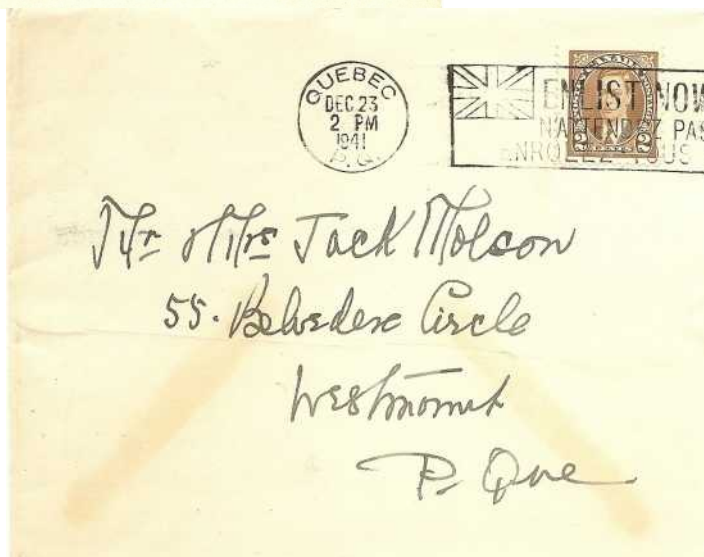 QUEBEC
DEC 23
2 PM
1941
P.Q.
ENLIST NOW
N'ATTENDEZ PAS
ENROLEZ-VOUS
2 2
Mr & Mrs Jack Molson
55. Belvedere Circle
Westmount
P. Que